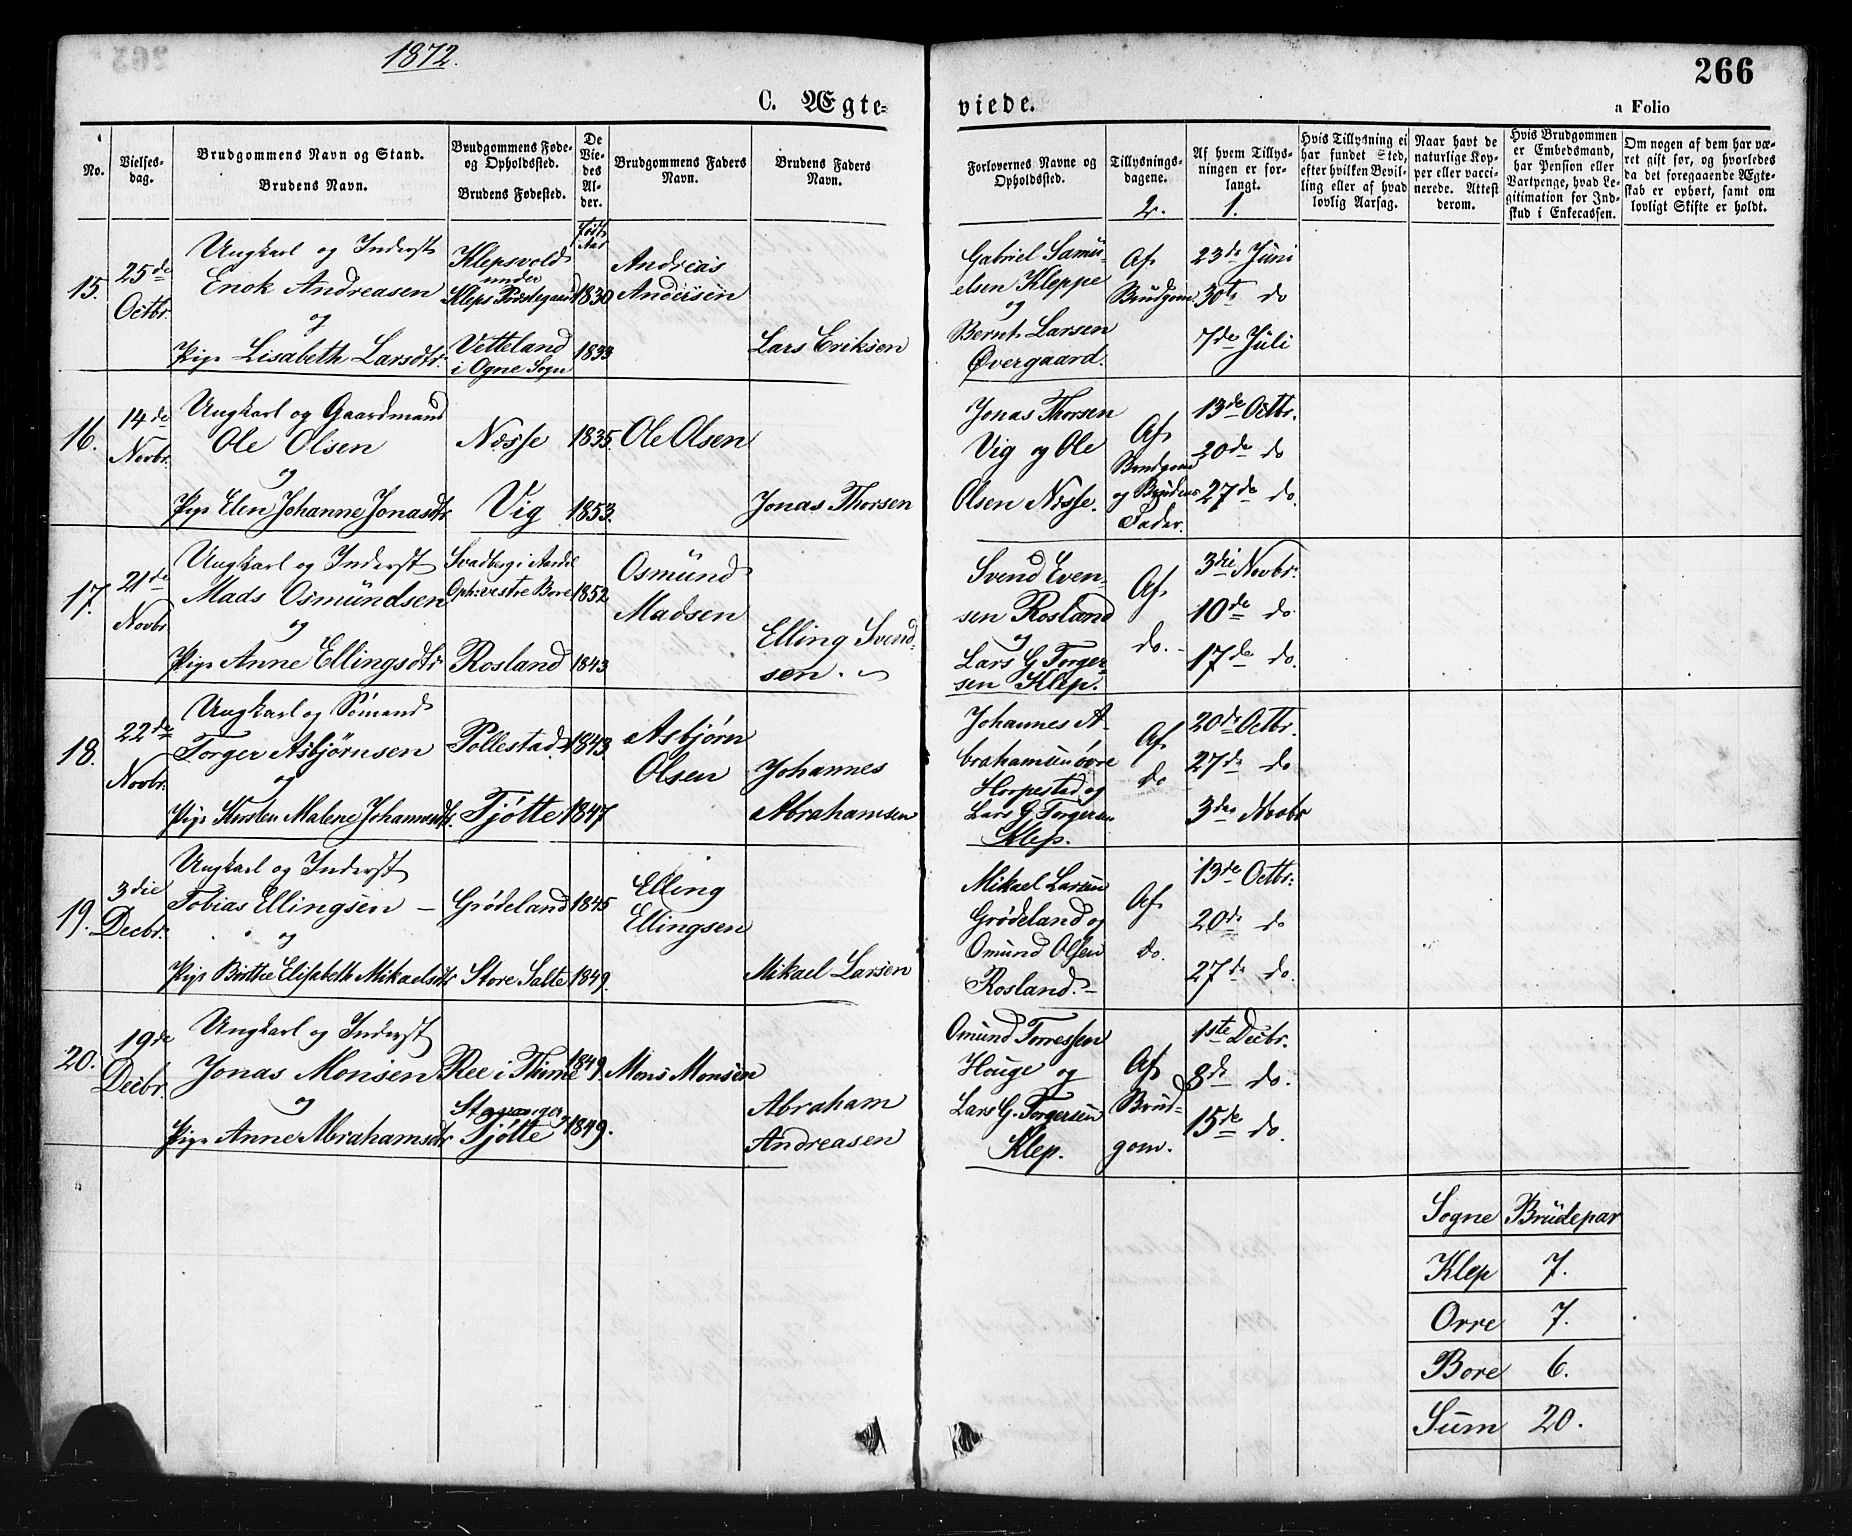 1872.
266
C. Ægte-
viede.
a Folio
No.
Vielses-
dag.
Brudgommens Navn og Stand.
Brudens Navn.
Brudgommens Føde-
og Opholdssted.
Brudens Fødested.
De
Vie-
des
Al-
der.
Brudgommens Faders
Navn.
Brudens Faders
Navn.
Forlovernes Navne og
Opholdssted.
Tillysnings-
dagene.
2.
Af hvem Tillys-
ningen er for-
langt.
1.
Hvis Tillysning ei
har fundet Sted,
efter hvilken Bevil-
ling eller af hvad
lovlig Aarsag.
Naar havt de
naturlige Kop-
per eller vacci-
nerede. Attest
derom.
Hvis Brudgommen
er Embedsmand,
har Pension eller
Vartpenge, hvad Le-
gitimation for Ind-
skud i Enkecassen.
Om nogen af dem har væ-
ret gift før, og hvorledes
da det foregaaende Ægte-
skab er ophørt, samt om
lovligt Skifte er holdt.
Født
Aar
15.
25de
Octbr.
Ungkarl og Inderst
Enok Andreasen
og
Pige Lisabeth Larsdtr.
Klepsvold
under
Kleps Præstegaard
Vetteland
i Ogne Sogn
1830
1833
Andreas
Lars Eriksen
Gabriel Samu-
elsen Kleppe
og
Bernt Larsen
Øvergaard.
Af
Brudgom
23de Juni
30te do
7de Juli
16.
14de
Novbr.
Ungkarl og Gaardmand
Ole Olsen
og
Pige Elen Johanne Jonasdtr
Næsse
Vig
1835.
1853.
Ole Olsen
Jonas Thorsen
Jonas Thorsen
Vig og Ole
Olsen Næsse.
Af
Brudgom
og Brudens
Fader.
13de Octbr.
20de do
27de do.
17.
21de
Novbr
Ungkarl og Inderst
Mads Osmundsen
og
Pige Anne Ellingsdtr
Oph: vestre Bore
Rosland
1852
1843
Osmund
Madsen
Elling Svend-
sen.
Svend Even-
sen Rosland
og
Lars G Torger-
sen Klep.
Af
do.
3die Novbr.
10de do
17de do.
18.
22de
Novbr.
Ungkarl og Sømand
Torger Asbjørnsen
og
Pige Kirsten Malene Johannesdtr.
Pollestad
Tjøtte
1843.
1847
Asbjørn
Olsen
Johannes
Abrahamsen
Johannes A-
brahamsen øvre
Horpestad og
Lars G Torgersen
Klep.
Af
do
20de Octbr.
27de do
3die Novbr
19.
3die
Decbr.
Ungkarl og Inderst
Tobias Ellingsen —
og
Pige Birthe Elisabeth Mikaelsdtr
Grødeland
Store Salte
1845
1849.
Elling
Ellingsen
Mikael Larsen
Mikael Larsen
Grødeland og
Omund Olsen
Rosland.
Af
do.
13de Octbr:
20de do
27de do.
20.
19de
Decbr.
Ungkarl og Inderst
Jonas Monsen
og
Pige Anne Abrahamsdtr
Ree i Thime
Stavanger
Tjøtte
1849.
1849.
Mons Monsen
Abraham
Andreasen
Omund Torressen
Houge og
Lars G. Torgersen
Klep.
Af
Brud-
gom.
1ste Decbr.
8de do.
15de do.
Sogne Brudepar
Klep 7.
Orre 7.
Bore 6.
Sum 20.